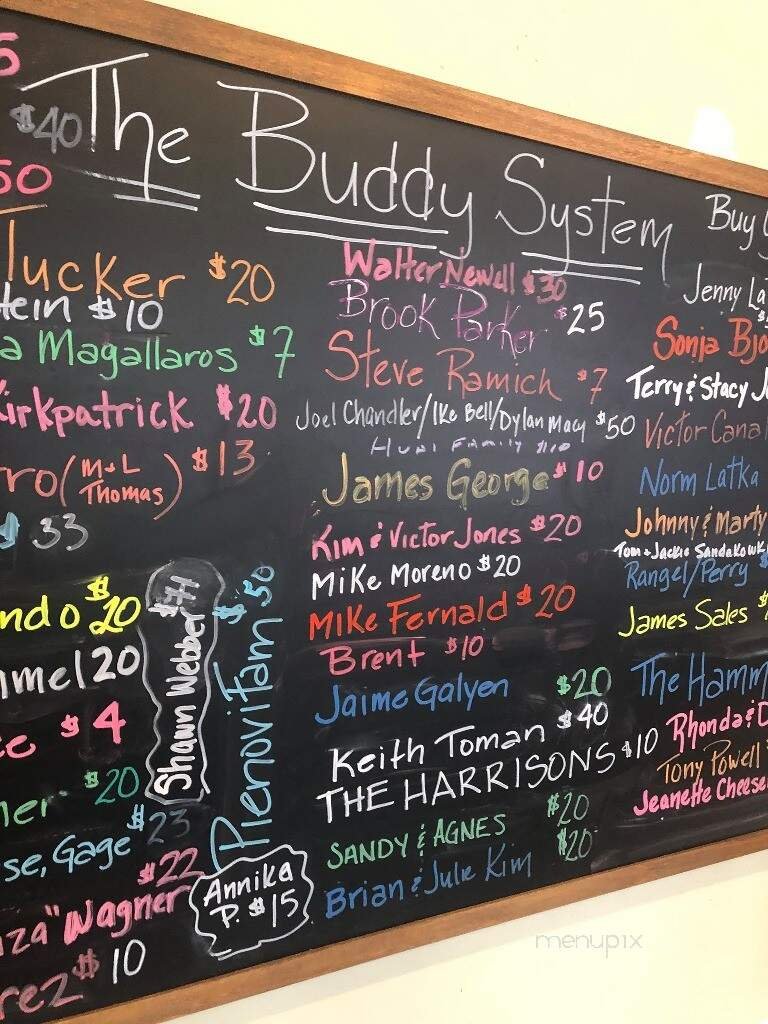 5
$40
50
The Buddy System
Buy
Tucker $20
tein $10
a Magallaros $7
Kirkpatrick $20
ro (M+L Thomas) $13
$33
ndo $20
mmel 20
ee $4
ner $20
se, Gage $23
$22
za" Wagner
rez $10
Shawn Webber $71
Pienovi Fam $50
Annika
P. $15
Walter Newell $30
Brook Parker $25
Steve Ramich $7
Joel Chandler/Ike Bell/Dylan Macy $50
Family $10
James George $10
Kim & Victor Jones $20
Mike Moreno $20
Mike Fernald $20
Brent $10
Jaime Galyen $20
Keith Toman $40
THE HARRISONS $10
SANDY & AGNES $20
Brian & Julie Kim $20
Jenny La
Sonja Bjo
Terry & Stacy J
Victor Cana
Norm Latka
Johnny & Marty
Tom + Jackie Sandakowk
Rangel/Perry $
James Sales $
The Hamm
Rhonda & D
Tony Powell
Jeanette Cheese
menupix